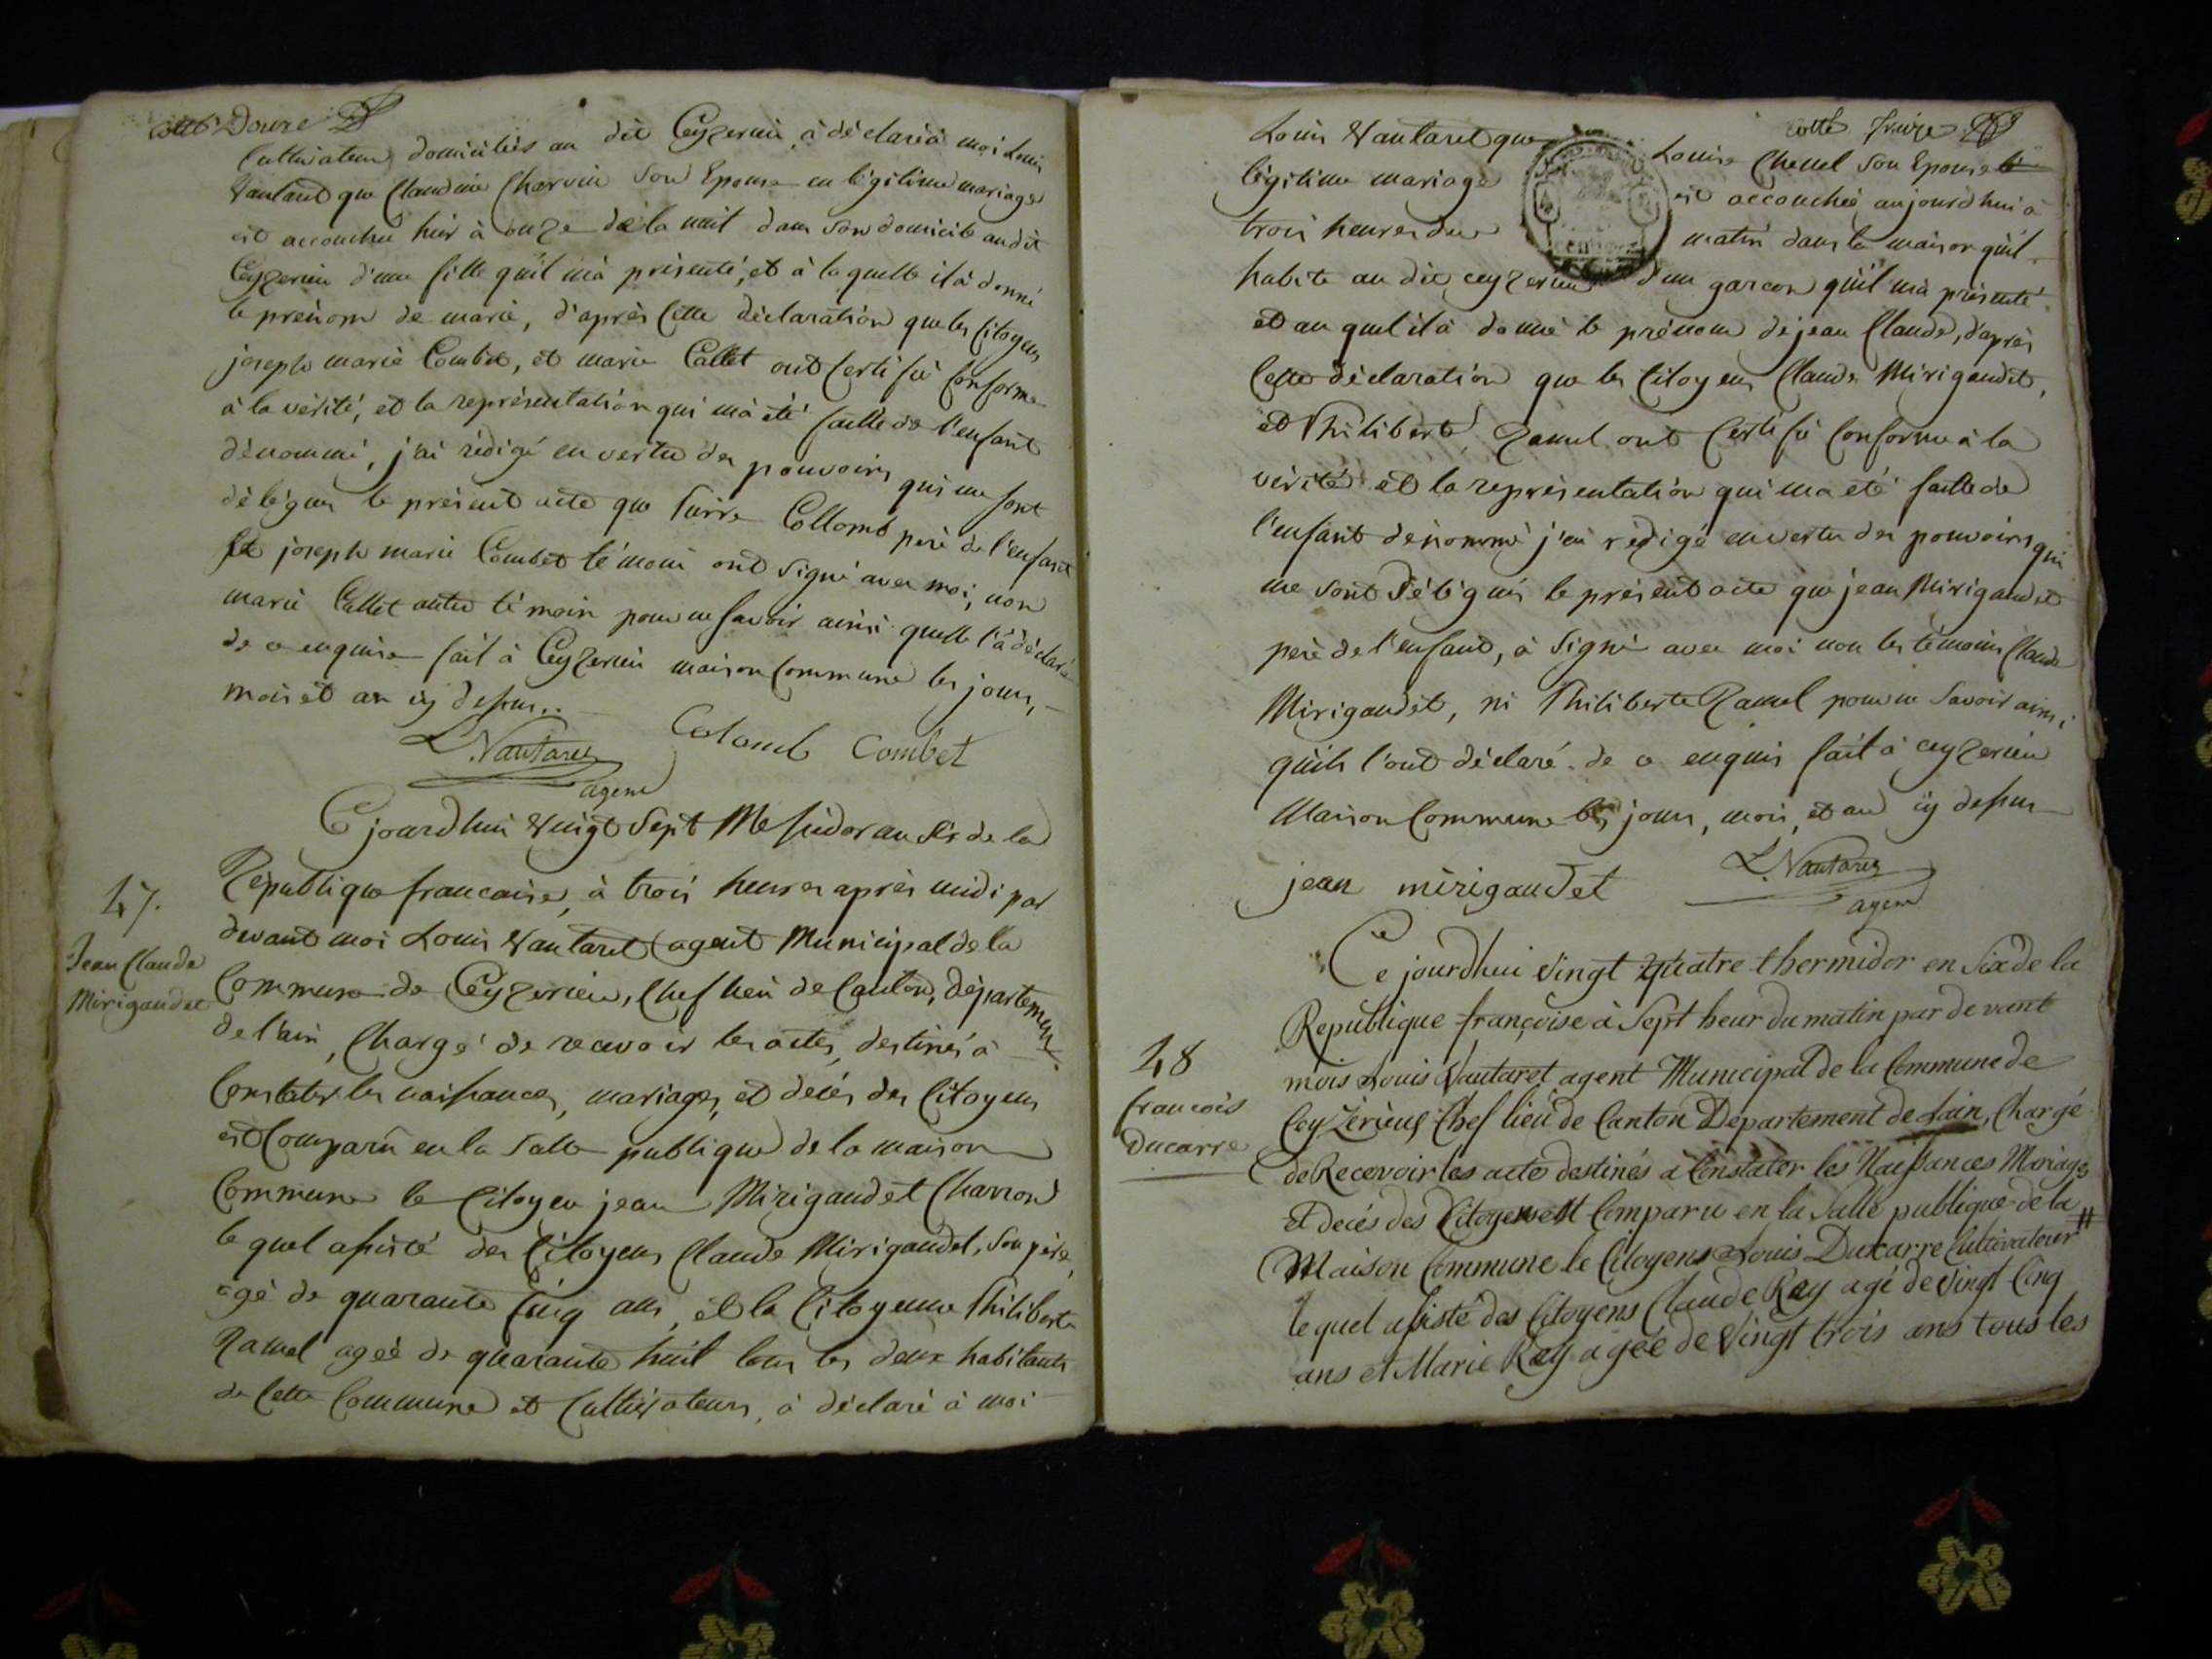 Cotté Douze
Cultivateurs domiciliés au dit Ceyzerieu, à déclaré à moi Louis
Vautaret que Claudine Charvin Son Epouse en légitime mariage
est accouchée hier à onze de la nuit dans Son domicile audit
Ceyzerieu d'une fille qu'il m'à présenté, et à laquelle il à donné
le prénom de marie, d'après Cette déclaration que les Citoyens
joseph marie Combet, et marie Callet ont Certifié Conforme
à la vérité, et la représentation qui m'à été faitte de l'enfant
dénommé, j'ai rédigé en vertu des pouvoirs qui me sont
délégués le présent acte que Pierre Collomb père de l'enfant
et joseph marie Combet témoin ont Signé avec moi, non
marie Callet autre témoin pour ne savoir ainsi quelle l'à déclaré
de ce enquise fait à Ceyzerieu maison Commune les jours,
mois et an cy dessus..
L. Vautaret Colomb Combet
agent
Cejourdhui vingt Sept Messidor an Six de la
47.
République francaise, à trois heures après midi par
devant moi Louis Vautaret agent Municipal de la
Jean Claude
Mirigaudet
Commune de Ceyzerieu, Chef lieu de Canton, département
de l'ain, Chargé de recevoir les actes, destinés à
Constater les naissances, mariages, et décès des Citoyens
est Comparû en la Salle publique de la maison
Commune le Citoyen jean Mirigaudet Charron
le quel assisté des Citoyens Claude Mirigaudet, Son père,
agé de quarante Cinq ans, et la Citoyenne Philiberte
Ramel ageé de quarante huit tous les deux habitants
de Cette Commune et Cultivateurs, à déclaré à moi
Cotté Treize
Louis Vautaret que Louise Chenel Son Epouse
légitime mariage est accouchée aujourdhui à
trois heures du matin dans la maison qu'il
habite au dit ceyzerieu d'un garcon qu'il m'à présenté
et au quel il à donné le prénom de jean Claude, d'après
Cette déclaration que les Citoyens Claude Mirigaudet,
et Philiberte Ramel ont Certifié Conforme à la
vérité et la représentation qui m'a eté faitte de
l'enfant dénommé j'ai rédigé en vertu des pouvoirs qui
me sont délégués le présent acte que jean Mirigaudet
père de l'enfant, à Signé avec moi non les témoins Claude
Mirigaudet, ni Philiberte Ramel pour ne Savoir ainsi
qu'ils l'ont déclaré de ce enquis fait à ceyzerieu
Maison Commune les jours, mois, et an cy dessus
jean mirigaudet L. Vautaret
agent
Ce jourdhui vingt quatre thermidor en Six de la
Republique françoise à Sept heur du matin par devant
48
mois Louis Vautaret agent Municipal de la Commune de
francois
Ducarre
Ceyzérieux Chef lieu de Canton Département de Lain, Chargé
de Recevoir les acte destinés à Constater les Naissances Mariages
Et decés des Citoyens est Comparu en la Salle publique de la
Maison Commune le Citoyens Louis Ducarre Cultivateur #
le quel assisté des Citoyens Claude Rey agé de vingt Cinq
ans et Marie Rey agée de vingt trois ans tous les